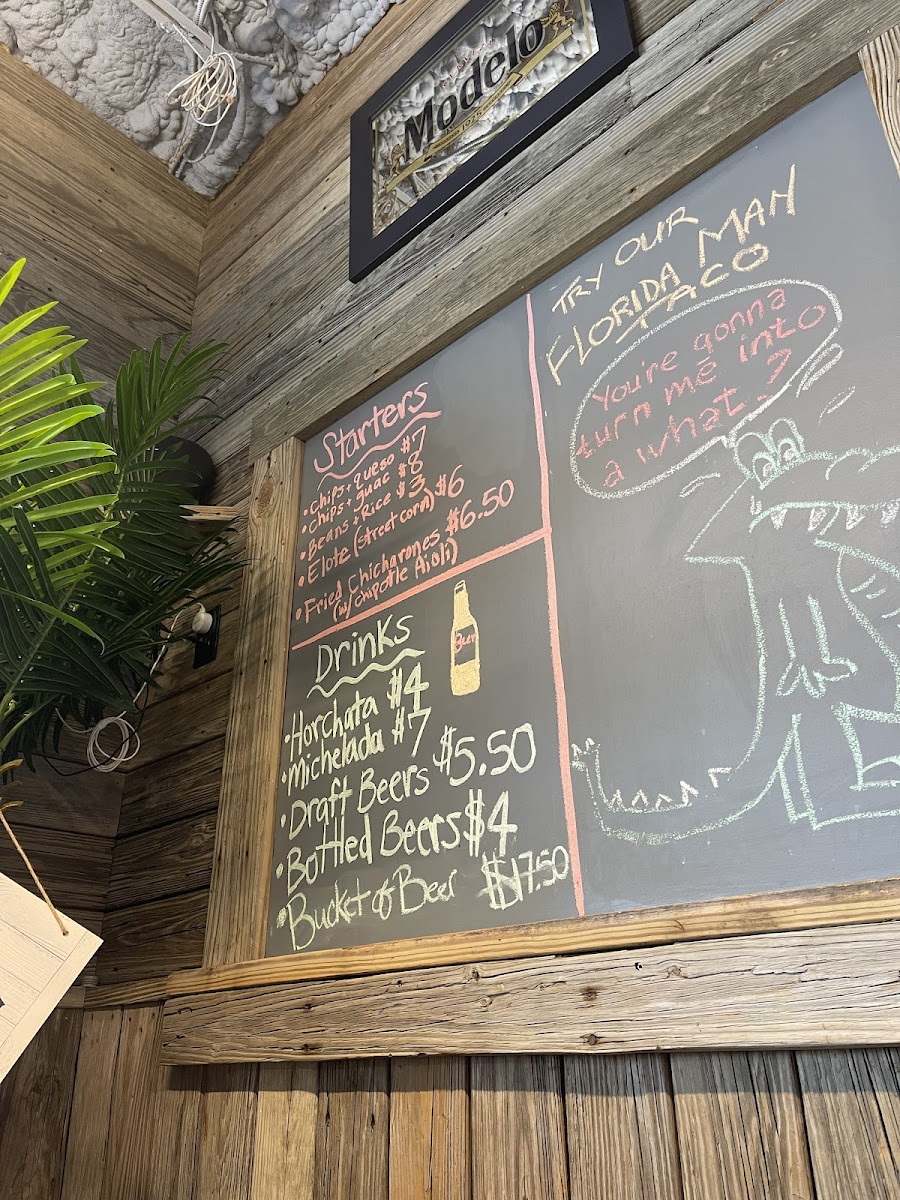 Modelo
TRY OUR
FLORIDA MAN
TACO
You're gonna
turn me into
a what?
Starters
• chips + queso $7
• chips + guac $8
• Beans + Rice $3
• Elote (street corn) $6
• Fried Chicharones $6.50
(w/ chipotle Aioli)
Drinks
Beer
• Horchata $4
• Michelada $7
• Draft Beers $5.50
• Bottled Beers $4
• Bucket of Beer $17.50